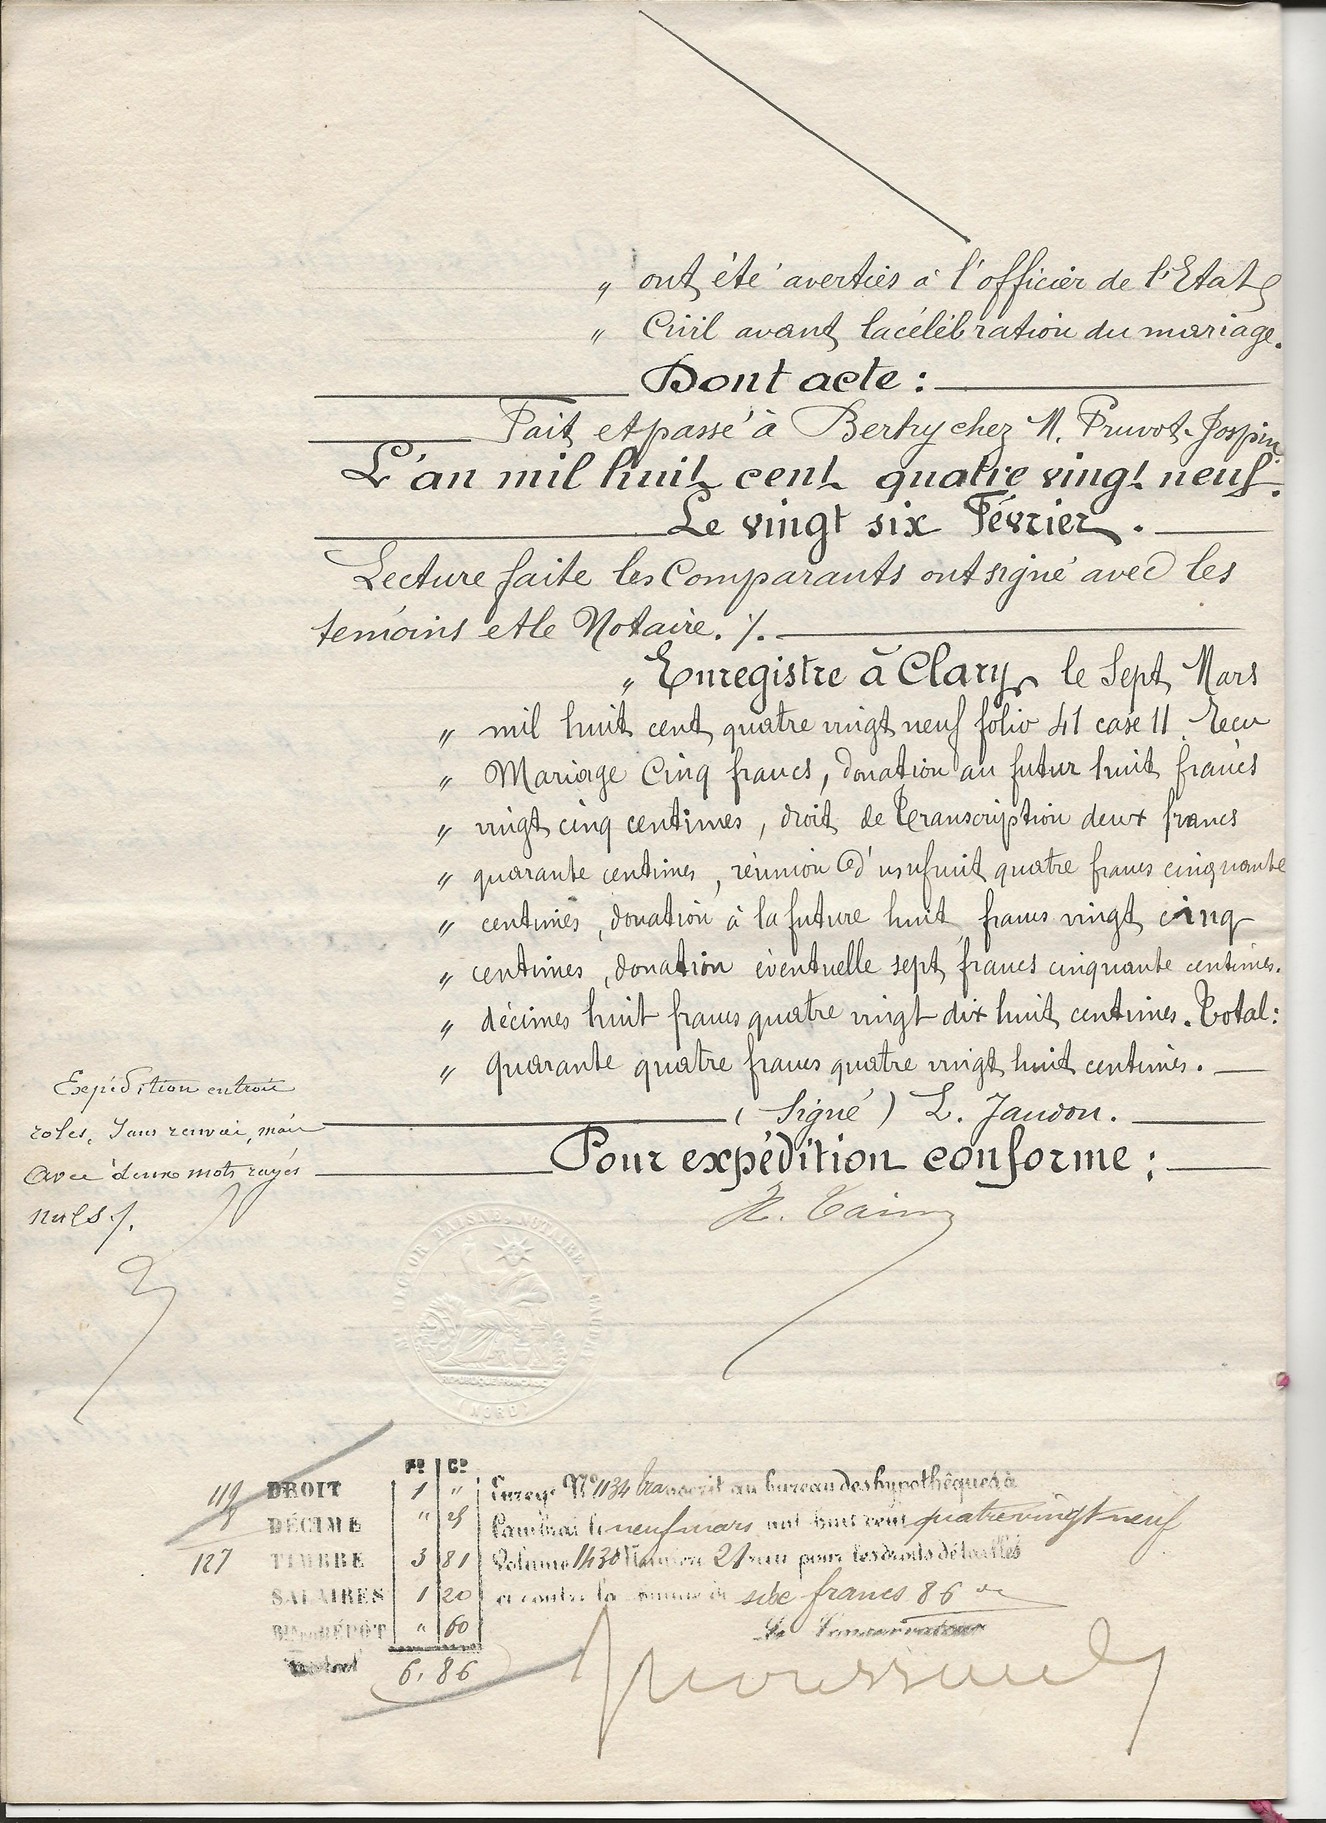 „ ont été avertiés à l'officier de l'Etat
„ Civil avant lacélébration du mariage.
Dont acte :
Fait et passé à Bertry chez M. Pruvot-Jospin.
L'an mil huit cent quatre vingt neuf.
Le vingt six Février.
Lecture faite les Comparants ont signé avec les
temoins et le Notaire. ./.
„ Enregistre à Clary, le Sept Mars
„ mil huit cent quatre vingt neuf folio 41 case 11. Reçu
„ Mariage Cinq francs, donation au futur huit francs
„ vingt cinq centimes, droit de Transcription deux francs
„ quarante centimes, réunion d'usufruit quatre francs cinquante
„ centimes, donation à la future huit francs vingt cinq
„ centimes, donation éventuelle sept francs cinquante centimes.
„ décimes huit francs quatre vingt dix huit centimes. Total:
„ quarante quatre francs quatre vingt huit centimes.
(Signé) L. Jaudon.
Pour expédition conforme :
Expédition en trois
roles, Sans renvoi, mais
avec deux mots rayés
nuls ./.
TAISNE, NOTAIRE À
REPUBLIQUE FRANÇAISE
(NORD)
Fs. Cs.
119 DROIT 1 „ Enregé No 1134 transcrit au bureau des hypothèques à
8 DÉCIME „ 25 Cambrai le neuf mars mil huit cent quatre vingt neuf
127 TIMBRE 3 81 Volume 1430 Numéro 21 reçu pour les droits détaillés
SALAIRES 1 20 ci contre la somme de six francs 86 ces
DÉPÔT „ 60 Le Conservateur
6, 86